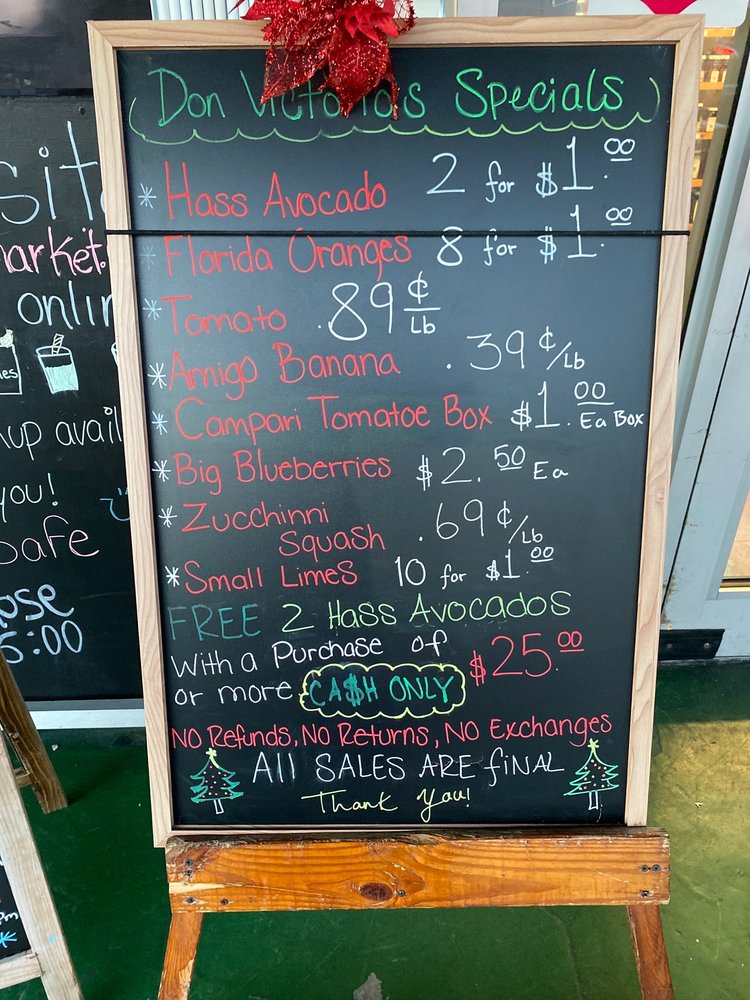 Don Victorio's Specials
* Hass Avocado 2 for $1.00
* Florida Oranges 8 for $1.00
* Tomato .89¢/Lb
* Amigo Banana .39¢/Lb
* Campari Tomatoe Box $1.00 Ea Box
* Big Blueberries $2.50 Ea
* Zucchinni
Squash .69¢/Lb
* Small Limes 10 for $1.00
FREE 2 Hass Avocados
With a Purchase of $25.00
or more CA$H ONLY
NO Refunds, No Returns, NO Exchanges
All SALES ARE fiNAL
Thank You!
online
you!
5:00